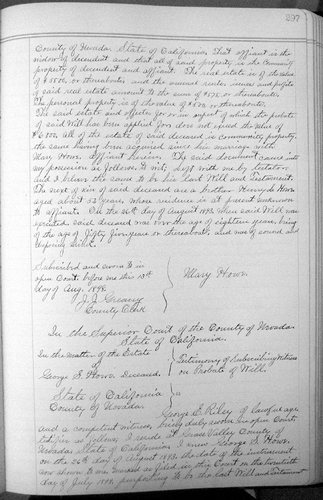 297
County of Nevada, State of California, That affiant is the
widow of decendent and that all of said property is the Community
property of decendent and affiant. The real estate is of the value
of $5500, or thereabouts and the annual rents, issues and profits
of said real estate amount to the sum of $ or thereabouts.
The personal property is of the value of $ or thereabouts.
The said estate and effects for or in respect of which the probate
of said Will has been applied for does not exceed the value of
$6000, all of the estate of said deceased is community property,
the same having been acquired since his marriage with
Mary Howe, affiant herein. The said document came into
my possession as follows, to wit, left with me by testator
and I believe the same to be his last Will and Testament.
The next of kin of said deceased are a brother Henry Howe
aged about 52 years, whose residence is at present unknown
to affiant. On the 26th day of August 1893 when said Will was
executed, said deceased was over the age of eighteen years, being
of the age of fifty five years or thereabouts, and was of sound and
disposing mind.
Subscribed and sworn to in
open Court before me this 13th
day of Aug. 1898.
J. J. Greany
County Clerk
Mary Howe.
In the Superior Court of the County of Nevada
State of California.
In the matter of the Estate
of
George S. Howe Deceased.
Testimony of Subscribing Witness
on Probate of Will.
State of California
County of Nevada
ss
George E. Riley of lawful age
and a competent witness, being duly sworn in open Court
testifies as follows, I reside at Grass Valley County of
Nevada State of California. I knew George S. Howe,
on the 26th day of August 1893, the date of the instrument
now shown to me marked as filed in this Court on the twentieth
day of July 1898 purporting to be the last Will and Testament